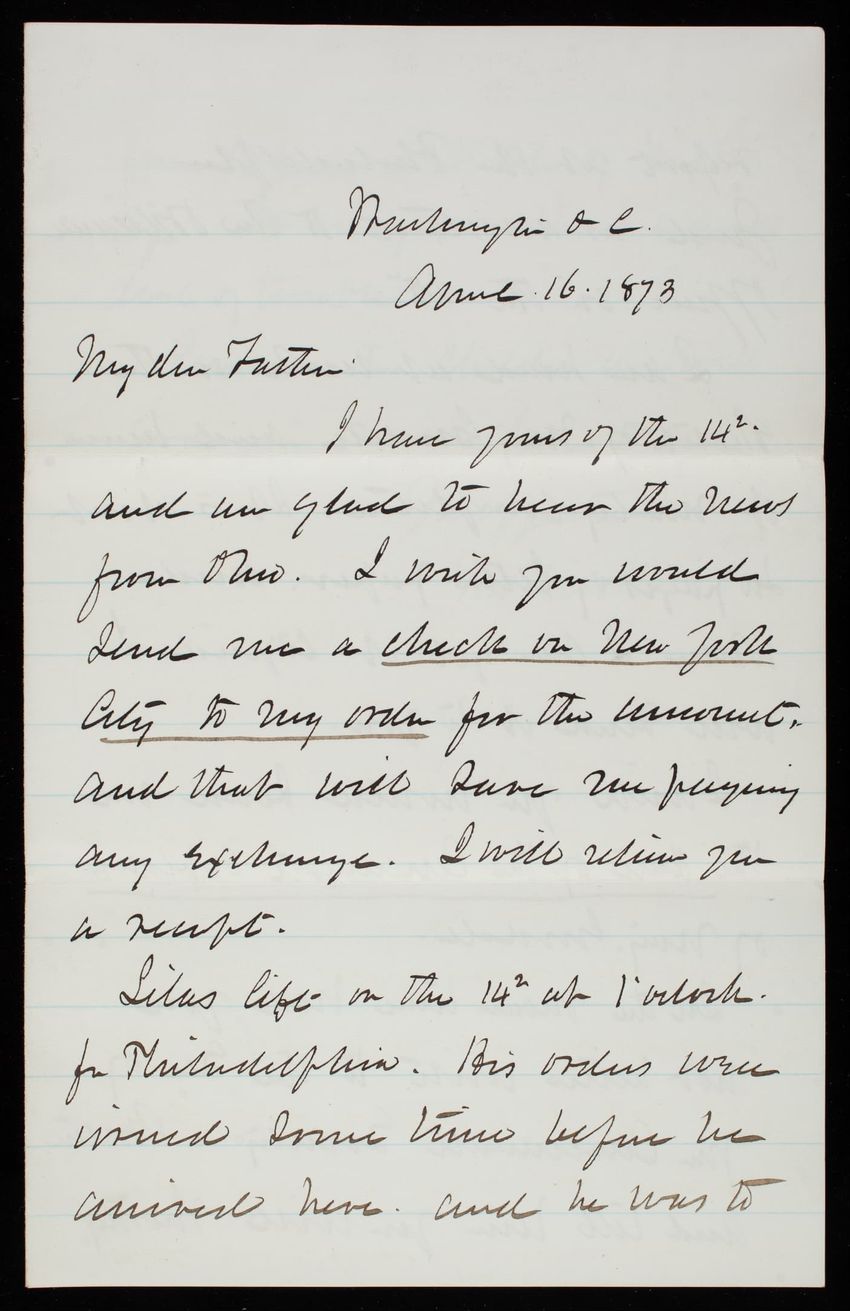 Washington D C.
April 16. 1873
My dear Father.
I have yours of the 14th.
and am glad to hear the news
from Ohio. I wish you would
send me a check on New York
City to my order for the amount.
and that will save me paying
any exchange. I will return you
a receipt.
Silas left on the 14th at 1 o'clock.
for Philadelphia. His orders were
issued some time before he
arrived here. and he was to